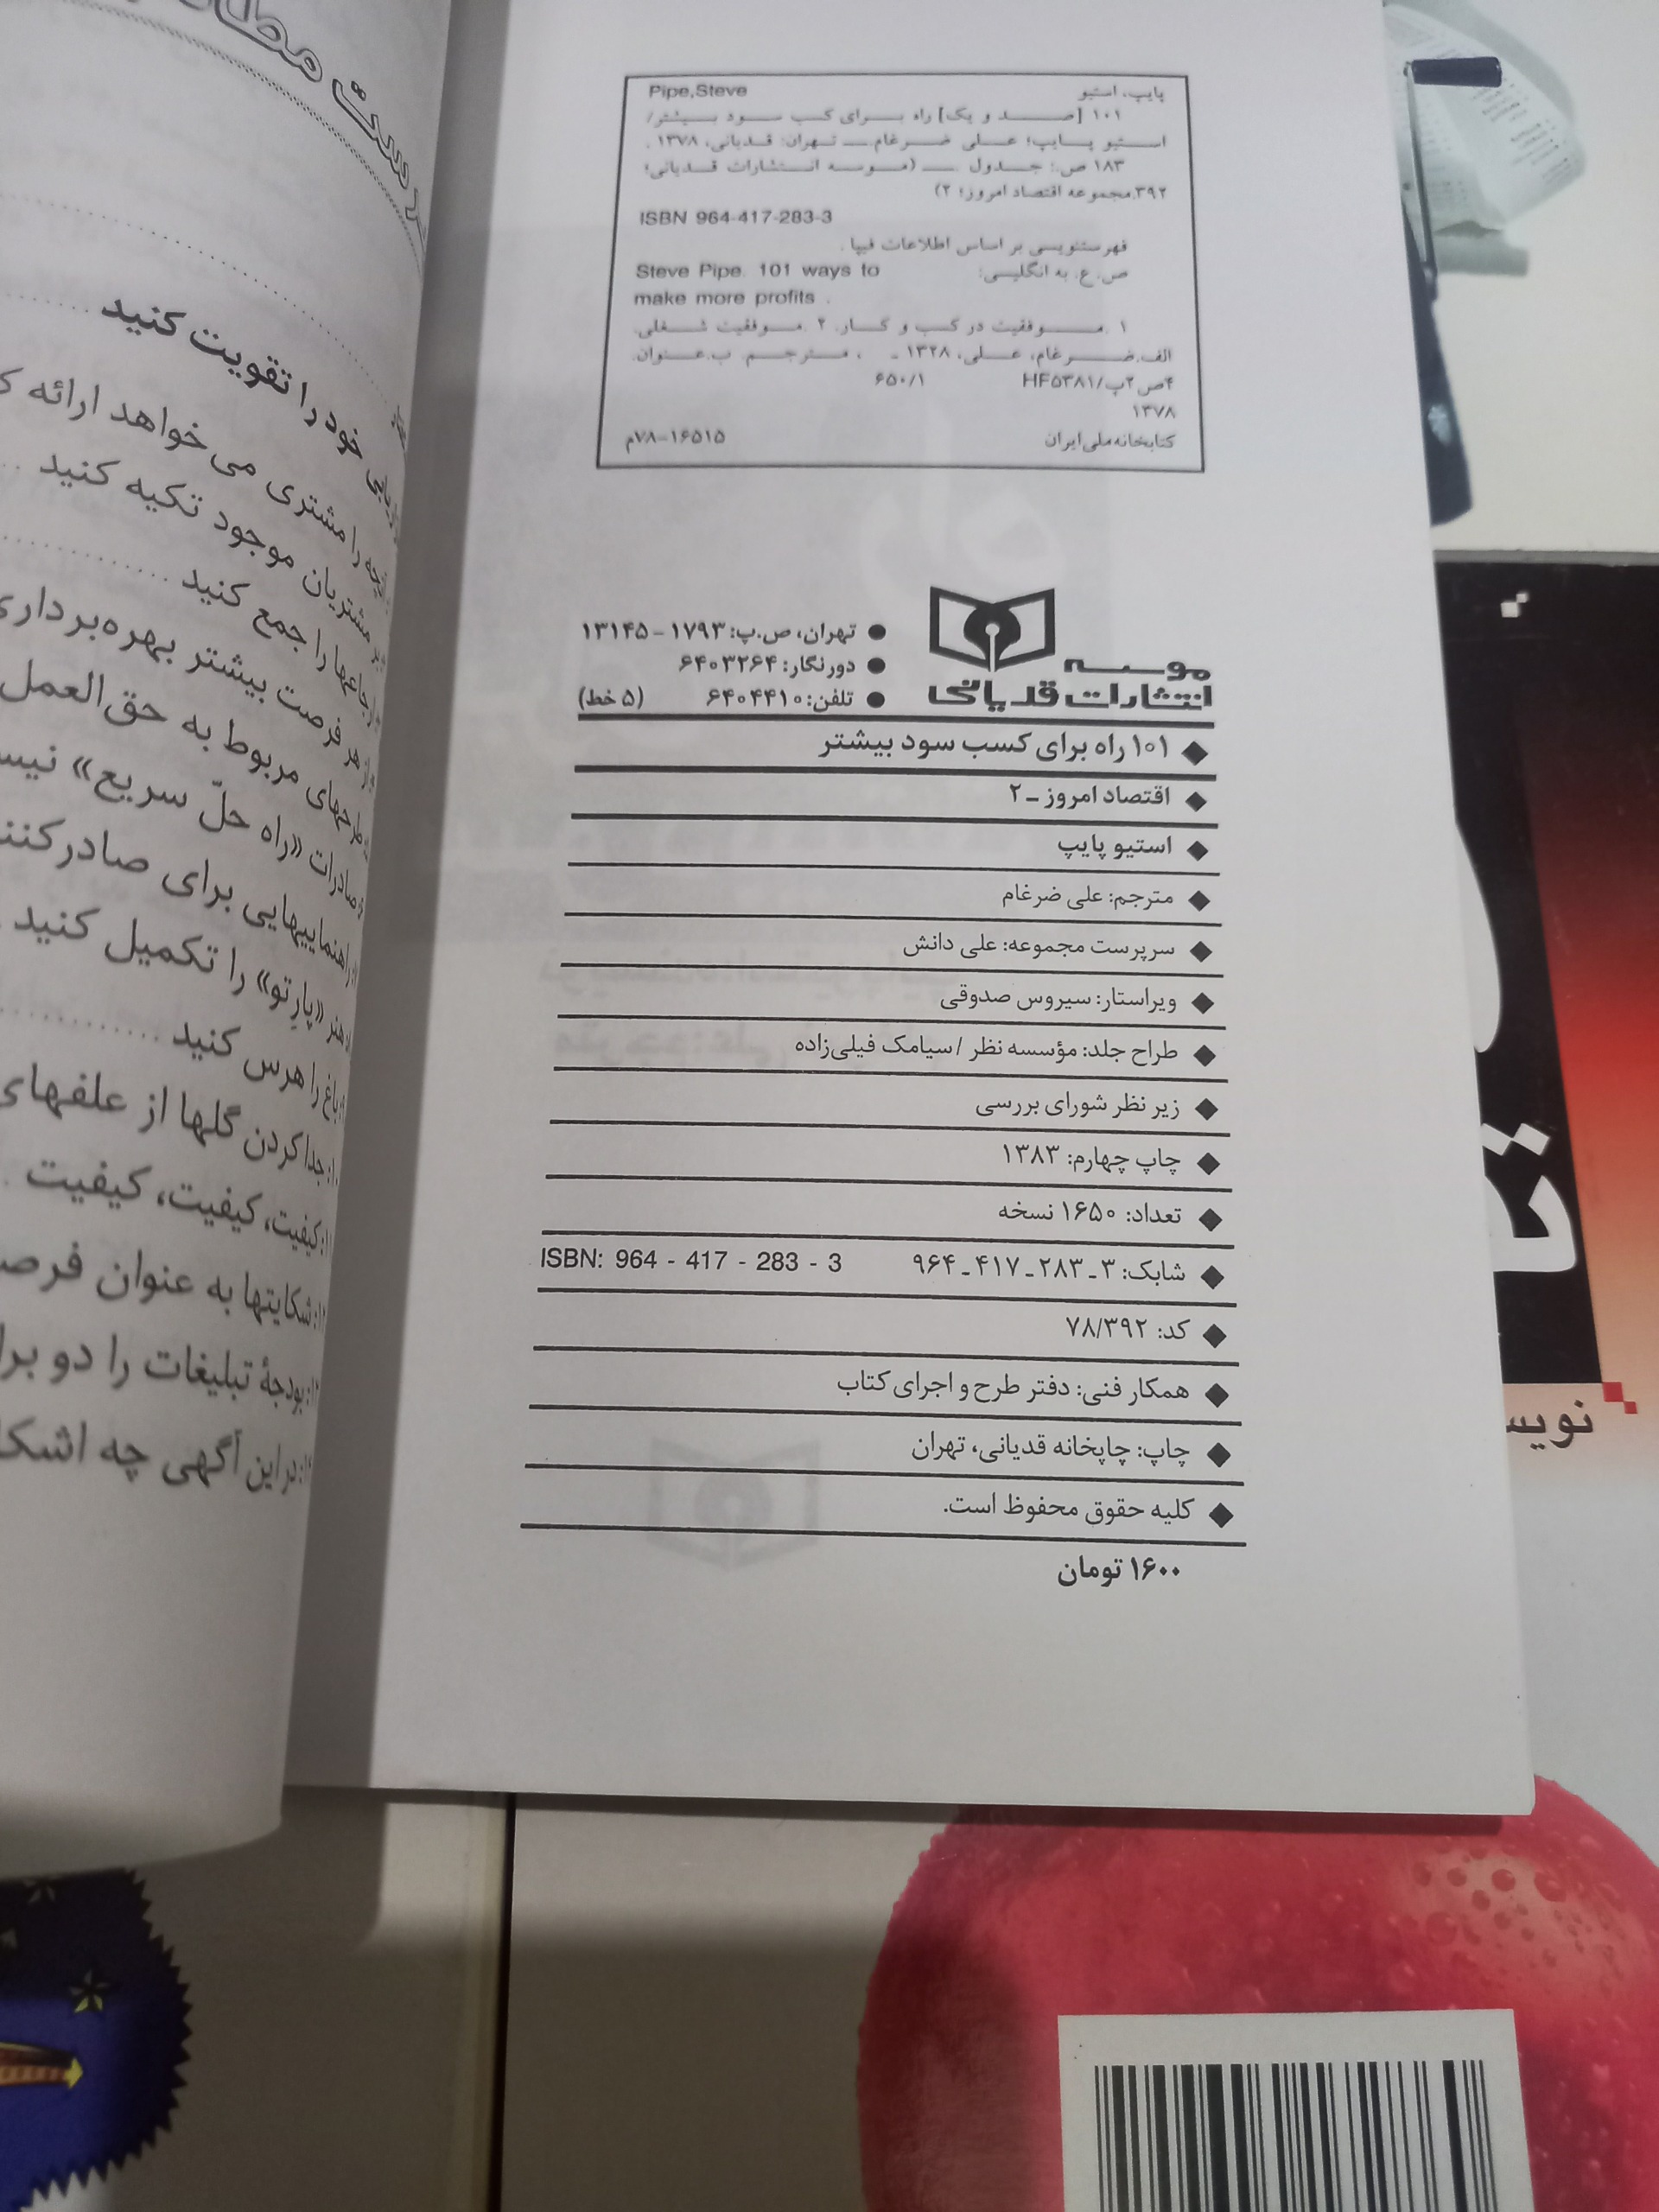 پایپ، استیو Pipe,Steve
۱۰۱ [صد و یک] راه برای کسب سود بیشتر/
استیو پایپ؛ علی ضرغام ــ تهران: قدیانی، ۱۳۷۸.
۱۸۳ ص.: جدول ــ (موسسه انتشارات قدیانی؛
۳۹۲.مجموعه اقتصاد امروز؛ ۲)
ISBN 964-417-283-3
فهرستنویسی بر اساس اطلاعات فیپا.
ص.ع. به انگلیسی: Steve Pipe. 101 ways to
make more profits .
۱. موفقیت در کسب و کار. ۲. موفقیت شغلی.
الف.ضرغام، علی، ۱۳۲۸ ـ ، مترجم. ب.عنوان.
۴ص۲پ/HF۵۳۸۱ ۶۵۰/۱
۱۳۷۸
کتابخانه ملی ایران ۱۶۵۱۵-۷۸م
موسسه
انتشارات قدیانی
● تهران، ص.پ: ۱۷۹۳ - ۱۳۱۴۵
● دورنگار: ۶۴۰۳۲۶۴
● تلفن: ۶۴۰۴۴۱۰ (۵ خط)
◆ ۱۰۱ راه برای کسب سود بیشتر
◆ اقتصاد امروز ـ ۲
◆ استیو پایپ
◆ مترجم: علی ضرغام
◆ سرپرست مجموعه: علی دانش
◆ ویراستار: سیروس صدوقی
◆ طراح جلد: مؤسسه نظر / سیامک فیلی‌زاده
◆ زیر نظر شورای بررسی
◆ چاپ چهارم: ۱۳۸۳
◆ تعداد: ۱۶۵۰ نسخه
◆ شابک: ۳ ـ ۲۸۳ ـ ۴۱۷ ـ ۹۶۴ ISBN: 964 - 417 - 283 - 3
◆ کد: ۷۸/۳۹۲
◆ همکار فنی: دفتر طرح و اجرای کتاب
◆ چاپ: چاپخانه قدیانی، تهران
◆ کلیه حقوق محفوظ است.
۱۶۰۰ تومان
خود را تقویت کنید
را مشتری می خواهد ارائه
مشتریان موجود تکیه کنید
را جمع کنید
هر فرصت بیشتر بهره‌برداری
طرحهای مربوط به حق‌العمل
صادرات «راه حلّ سریع»
راهنماییهایی برای
هنر «پارِتو» را تکمیل کنید
باغ را هرس کنید
جدا کردن گلها از علفهای
کیفیت، کیفیت، کیفیت
شکایتها به عنوان
بودجهٔ تبلیغات را دو
در این آگهی چه